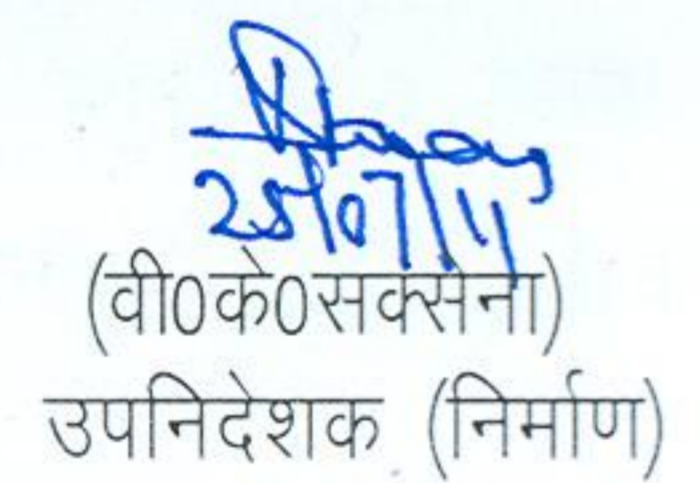 25/07/11
(वी0के0सक्सेना)
उपनिदेशक (निर्माण)